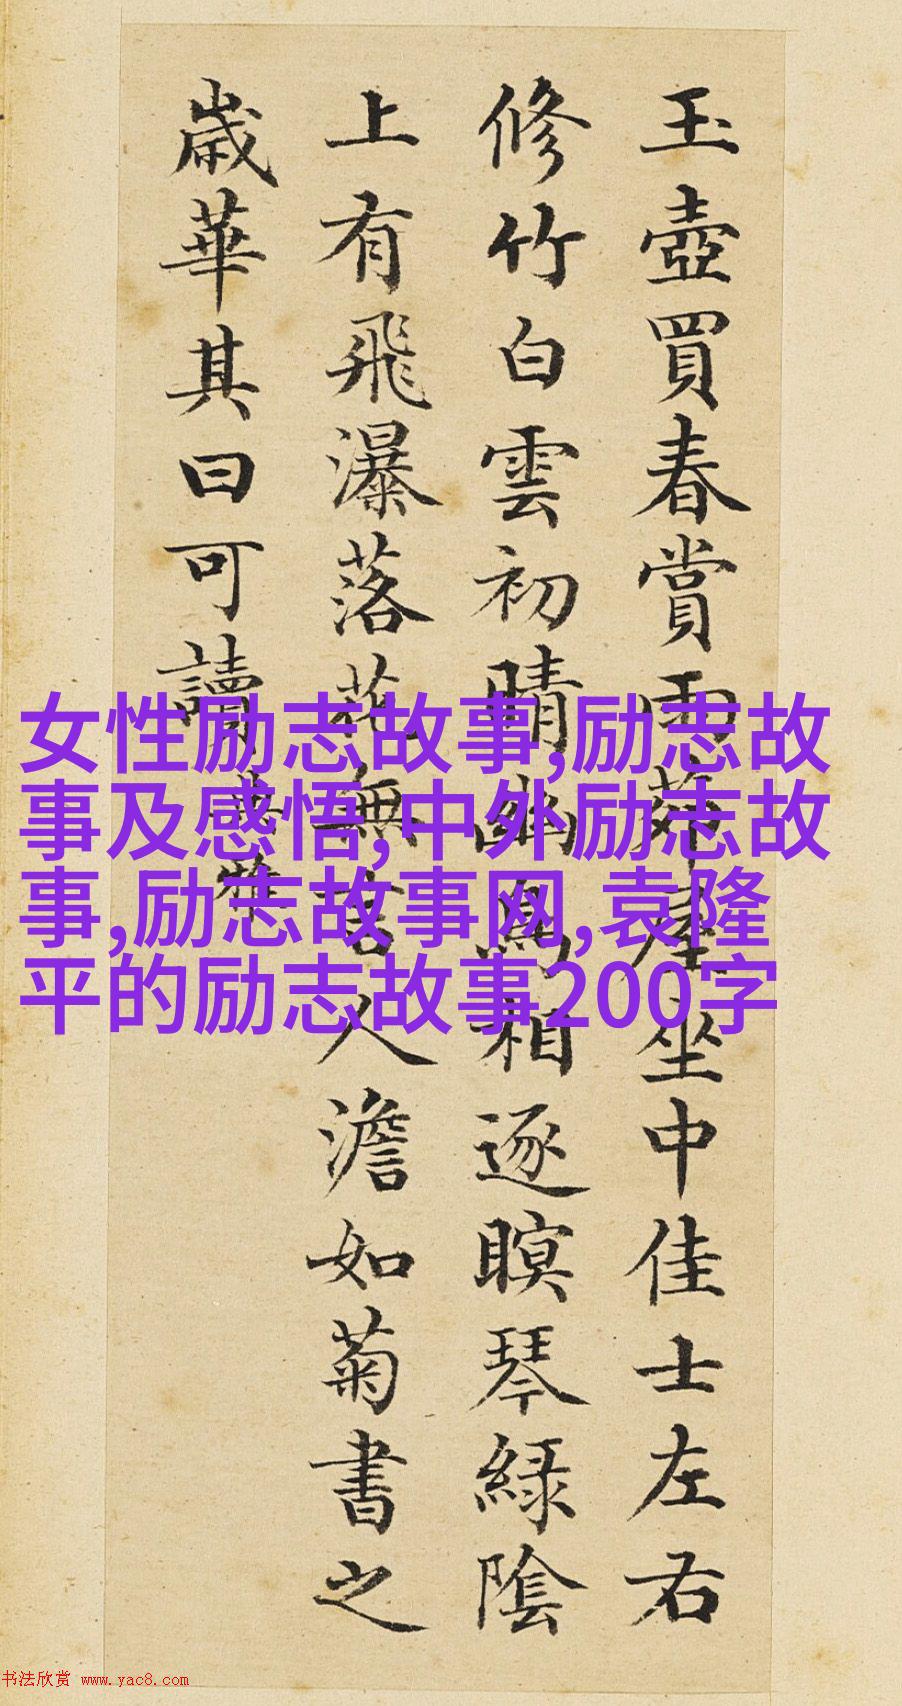 玉壺買春賞雨茆屋坐中佳士左右
修竹白雲初晴幽鳥相逐瞑琴綠陰
上有飛瀑落花無言人澹如菊書之
歲華其曰可讀
女性励志故事,励志故
事及感悟,中外励志故
事,励志故事网,袁隆
平的励志故事200字
书法欣赏 www.yac8.com